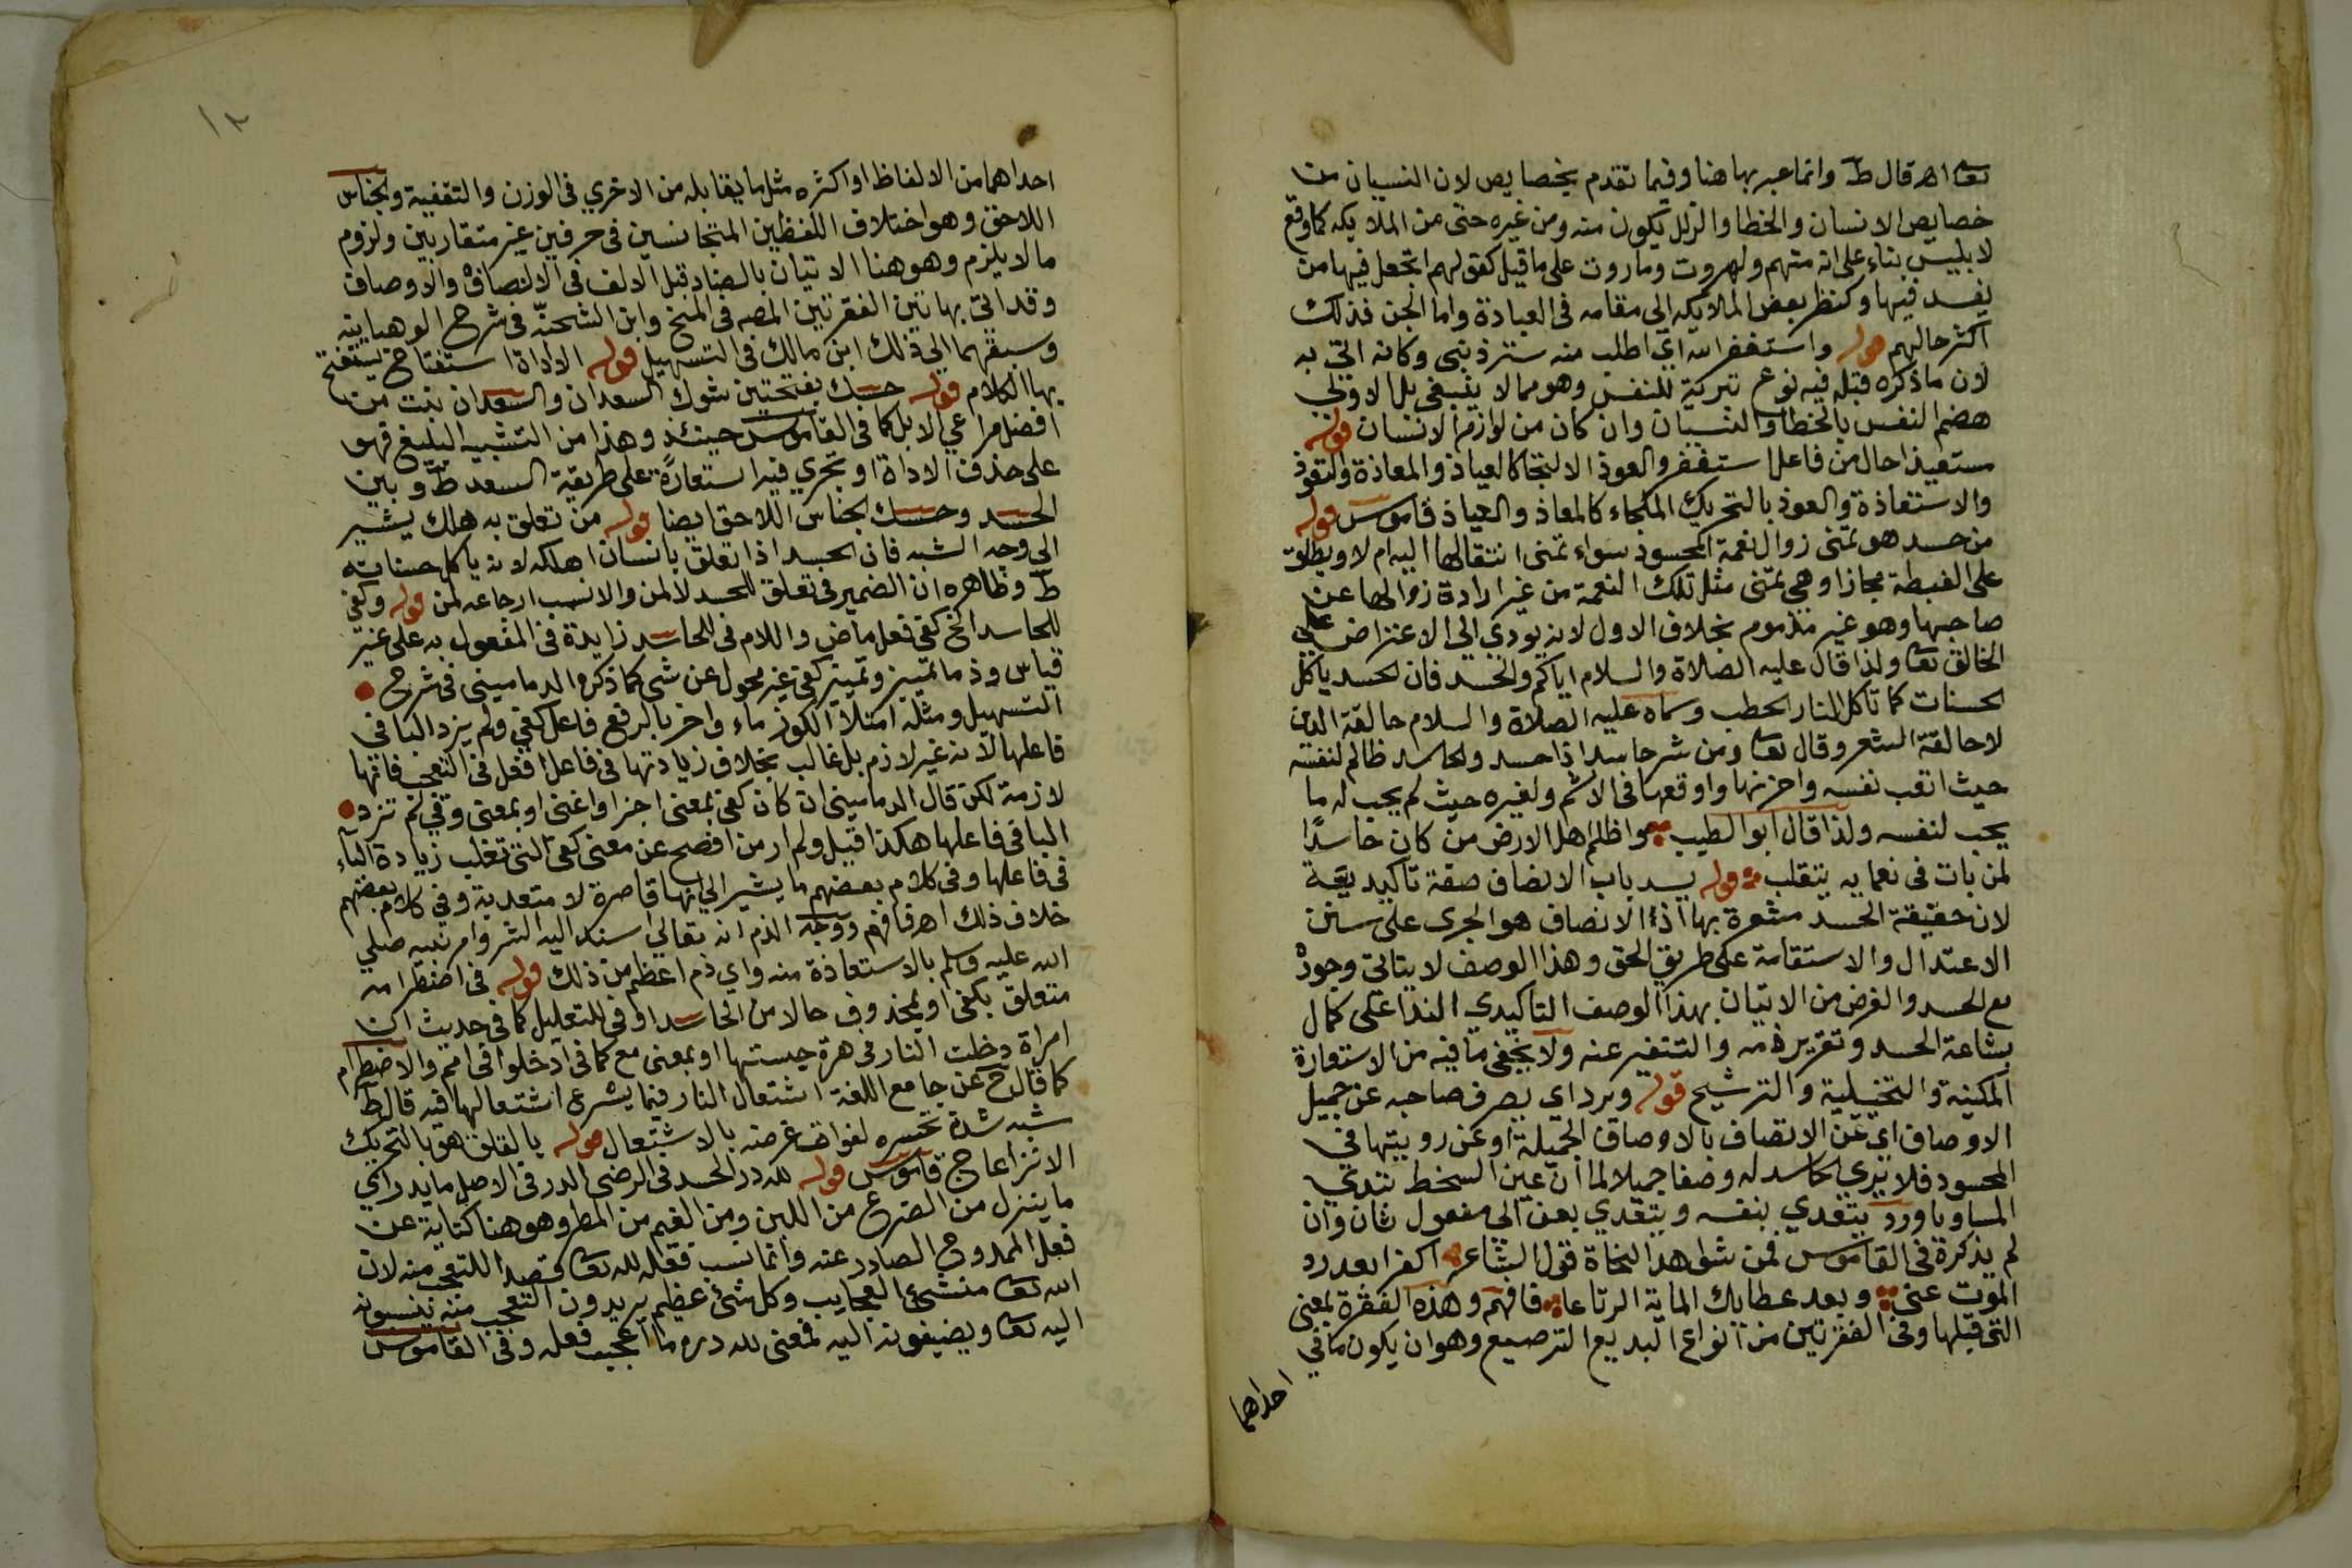 تعا اه قال ط وانما عبر بها هنا وفيما تقدم بخصايص لان النسيان من
خصايص الانسان والخطا والزلل يكون منه ومن غيره حتى من الملايكه كما وقع
لابليس بناء على انه منهم ولهروت وماروت على ما قيل كقولهم اتجعل فيها من
يفسد فيها وكنظر بعض الملايكه الى مقامه فى العبادة واما الجن فذلك
اكثر حالهم قوله واستغفر الله اي اطلب منه ستر ذنبى وكانه اتى به
لان ما ذكره قبله فيه نوع تبركية للنفس وهو مما لا ينبغى بل الاولى
هضم النفس بالخطا والنسيان وان كان من لوازم الانسان قوله
مستعيذا حال من فاعل استغفر والعوذ الالتجا كالعياذ والمعاذة والتعوذ
والاستعاذة والعوذ بالتحريك الملجاء كالمعاذ والعياذ قاموس قوله
من حسد هو تمنى زوال نعمة المحسود سواء تمنى انتقالها اليه ام لا ويطلق
على الغبطة مجازا وهى تمنى مثل تلك النعمة من غير ارادة زوالها عن
صاحبها وهو غير مذموم بخلاف الاول لانه يودي الى الاعتراض على
الخالق تعا ولذا قال عليه الصلاة والسلام اياكم والحسد فان الحسد ياكل
الحسنات كما تاكل النار الحطب وسماه عليه الصلاة والسلام حالقة الدين
لا حالقة الشعر وقال تعا ومن شر حاسد اذا حسد والحاسد ظالم لنفسه
حيث اتعب نفسه واحزنها واوقعها فى الاثم ولغيره حيث لم يحب له ما
يحب لنفسه ولذا قال ابو الطيب واظلم اهل الارض من كان حاسدًا
لمن بات فى نعمايه يتقلب قوله يسد باب الانصاف صفة تاكيديه
لان حقيقة الحسد مشعرة بها اذ الانصاف هو الجرى على سنن
الاعتدال والاستقامة على طريق الحق وهذا الوصف لا يتاتى وجوده
مع الحسد والغرض من الاتيان بهذا الوصف التاكيدي الندا على كمال
بشاعة الحسد وتقرير ذمه والتنفير عنه ولا يخفى ما فيه من الاستعارة
المكنية والتخييلية والترشيح قوله ويرد اي يصرف صاحبه عن جميل
الاوصاف اي عن الاتصاف بالاوصاف الجميلة او عن رويتها فى
المحسود فلا يرى الحاسد له وصفا جميلا لما ان عين السخط تبدي
المساويا ورد يتعدي بنفسه ويتعدي بعن الى مفعول ثان وان
لم يذكره فى القاموس فمن شواهد النحاة قول الشاعر اكفرا بعد رد
الموت عنى وبعد عطايك الماية الرتاعا فافهم وهذه الفقرة بمعنى
التى قبلها وفى الفقرتين من انواع البديع الترصيع وهو ان يكون ما في
احداهما
احداهما من الالفاظ او اكثره مثل ما يقابله من الاخري فى الوزن والتقفية والجناس
اللاحق وهو اختلاف اللفظين المتجانسين فى حرفين غير متقاربين ولزوم
ما لا يلزم وهو هنا الاتيان بالصاد قبل الالف فى الانصاف والاوصاف
وقد اتى بهاتين الفقرتين المصه فى المنح وابن الشحنة فى شرح الوهبانيه
وسبقهما الى ذلك ابن مالك فى التسهيل قوله الا اداة استفتاح يستفتح
بها الكلام قوله حسك بفتحتين شوك السعدان والسعدان نبت من
افضل مراعي الابل كما فى القاموس حينئذ وهذا من التشبيه البليغ فهو
على حذف الاداة او تجري فيه استعارة على طريقة السعد ط وبين
الحسد وحسك الجناس اللاحق ايضا قوله من تعلق به هلك يشير
الى وجه الشبه فان الحسد اذا تعلق بانسان اهلكه لانه ياكل حسناته
ط وظاهره ان الضمير فى تعلق للحسد لا لمن والانسب ارجاعه لمن قوله وكفى
للحاسد الخ كفى فعل ماض واللام فى للحاسد زايدة فى المفعول به على غير
قياس وذما تمييز وتمييز كفى غير محول عن شى كما ذكره الدمامينى فى شرح
التسهيل ومثله امتلأ الكوز ماء واخر بالرفع فاعل كفى ولم يزد البا فى
فاعلها لانه غير لازم بل غالب بخلاف زيادتها فى فاعل افعل فى التعجب فانها
لازمة لكن قال الدمامينى ان كان كفى بمعنى اجزا واغنى او بمعنى وقى لم تزد
البا فى فاعلها هكذا قيل ولم ار من افصح عن معنى كفى التى تغلب زيادة الباء
فى فاعلها وفى كلام بعضهم ما يشير الى انها قاصرة لا متعدية وفى كلام بعضهم
خلاف ذلك اه فافهم ووجه الذم انه تعالى اسند اليه الشر وامر نبيه صلى
الله عليه وسلم بالاستعاذة منه واي ذم اعظم من ذلك قوله فى اضطرامه
متعلق بكفى او بمحذوف حالا من الحاسد او فى للتعليل كما فى حديث ان
امراة دخلت النار فى هرة حبستها او بمعنى مع كما فى ادخلوا فى امم والاضطرام
كما قال ح عن جامع اللغة اشتعال النار فيما يشرع اشتعالها فيه قال ط
شبه شدة تحسره لفوات غرضه بالاشتعال قوله بالقلق هو بالتحريك
الانزعاج قاموس قوله لله در الحسد فى الرضى الدر فى الاصل ما يدر اي
ما ينزل من الضرع من اللبن ومن الغيم من المطر وهو هنا كناية عن
فعل الممدوح الصادر عنه وانما نسب فعله لله تعا قصدا للتعجب منه لان
الله تعا منشئ العجايب وكل شئ عظيم يريدون التعجب منه ينسبونه
اليه تعا ويضيفونه اليه فمعنى لله دره ما اعجب فعله وفى القاموس